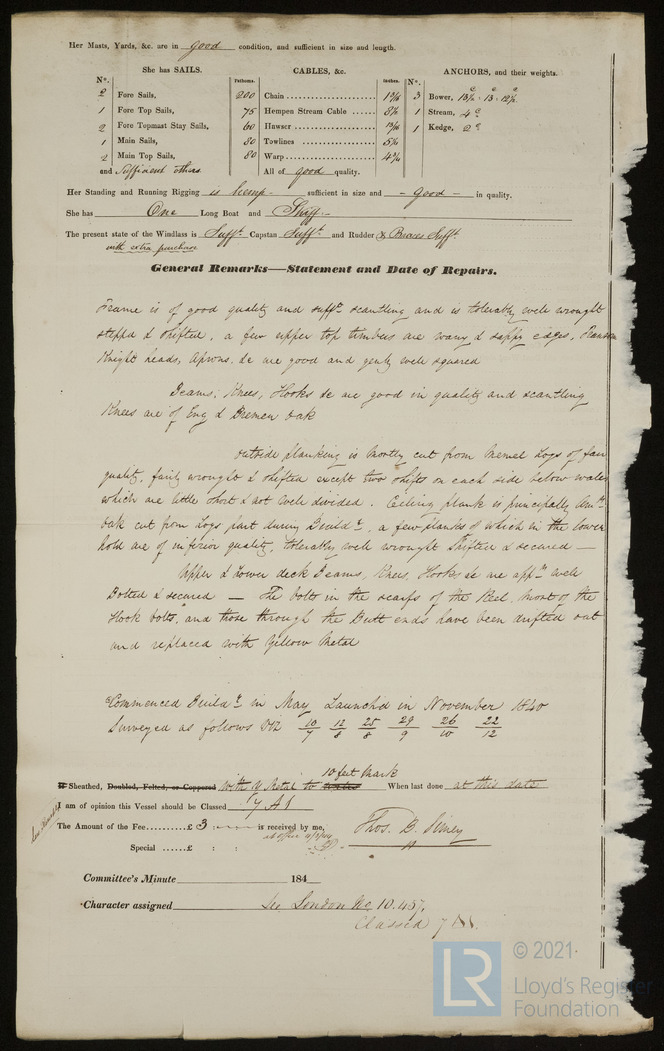 Her Masts, Yards, &c. are in good condition, and sufficient in size and length.
She has SAILS. CABLES, &c. ANCHORS, and their weights.
N°. Fathoms. Inches. N°.
2 Fore Sails, 200 Chain 1 9/16 3 Bower,
1 Fore Top Sails, 75 Hempen Stream Cable 8½ 1 Stream, 4
2 Fore Topmast Stay Sails, 60 Hawser 1 Kedge, 2
1 Main Sails, 80 Towlines 5½
2 Main Top Sails, 80 Warp
and Sufficient others All of good quality.
Her Standing and Running Rigging is hemp sufficient in size and - good - in quality.
She has One Long Boat and Skiff
The present state of the Windlass is Suff.t Capstan Suff.t and Rudder & Braces Suff.t
with extra purchase
General Remarks—Statement and Date of Repairs.
Frame is of good quality and suff.t scantling and is tolerably well wrought
stepp'd & shifted, a few upper top timbers are wany & sappy edges,
Knight heads, Aprons, &c are good and genly well squared
Beams, Knees, Hooks &c are good in quality and scantling
Knees are of Eng & Bremen Oak
Outside planking is mostly cut from Memel Logs of fair
quality, fairly wrought & shifted except two shifts on each side below water
which are little short & not well divided. Ceiling plank is principally Am.n
Oak cut from Logs part during Build.g, a few planks of which in the lower
hold are of inferior quality, tolerably well wrought shifted & secured —
Upper & Lower deck Beams, Knees, Hooks &c are well
Bolted & secured — The bolts in the scarfs of the Keel, most of the
Hook bolts, and those through the Butt ends have been drifted out
and replaced with Yellow Metal
Commenced Build.g in May, Launch'd in November 1840
Surveyed as follows Viz 10/7 12/8 25/8 29/9 26/10 22/12
10 feet mark
If Sheathed, Doubled, Felted, or Coppered with Y Metal to When last done at this date
I am of opinion this Vessel should be Classed 7 A1
The Amount of the Fee £ 3 is received by me,
Thos. B. Simey
Special £ : :
Committee's Minute 184
Character assigned See London No 10.457.
Classed 7 A1.
© 2021
LR
Lloyd's Register
Foundation